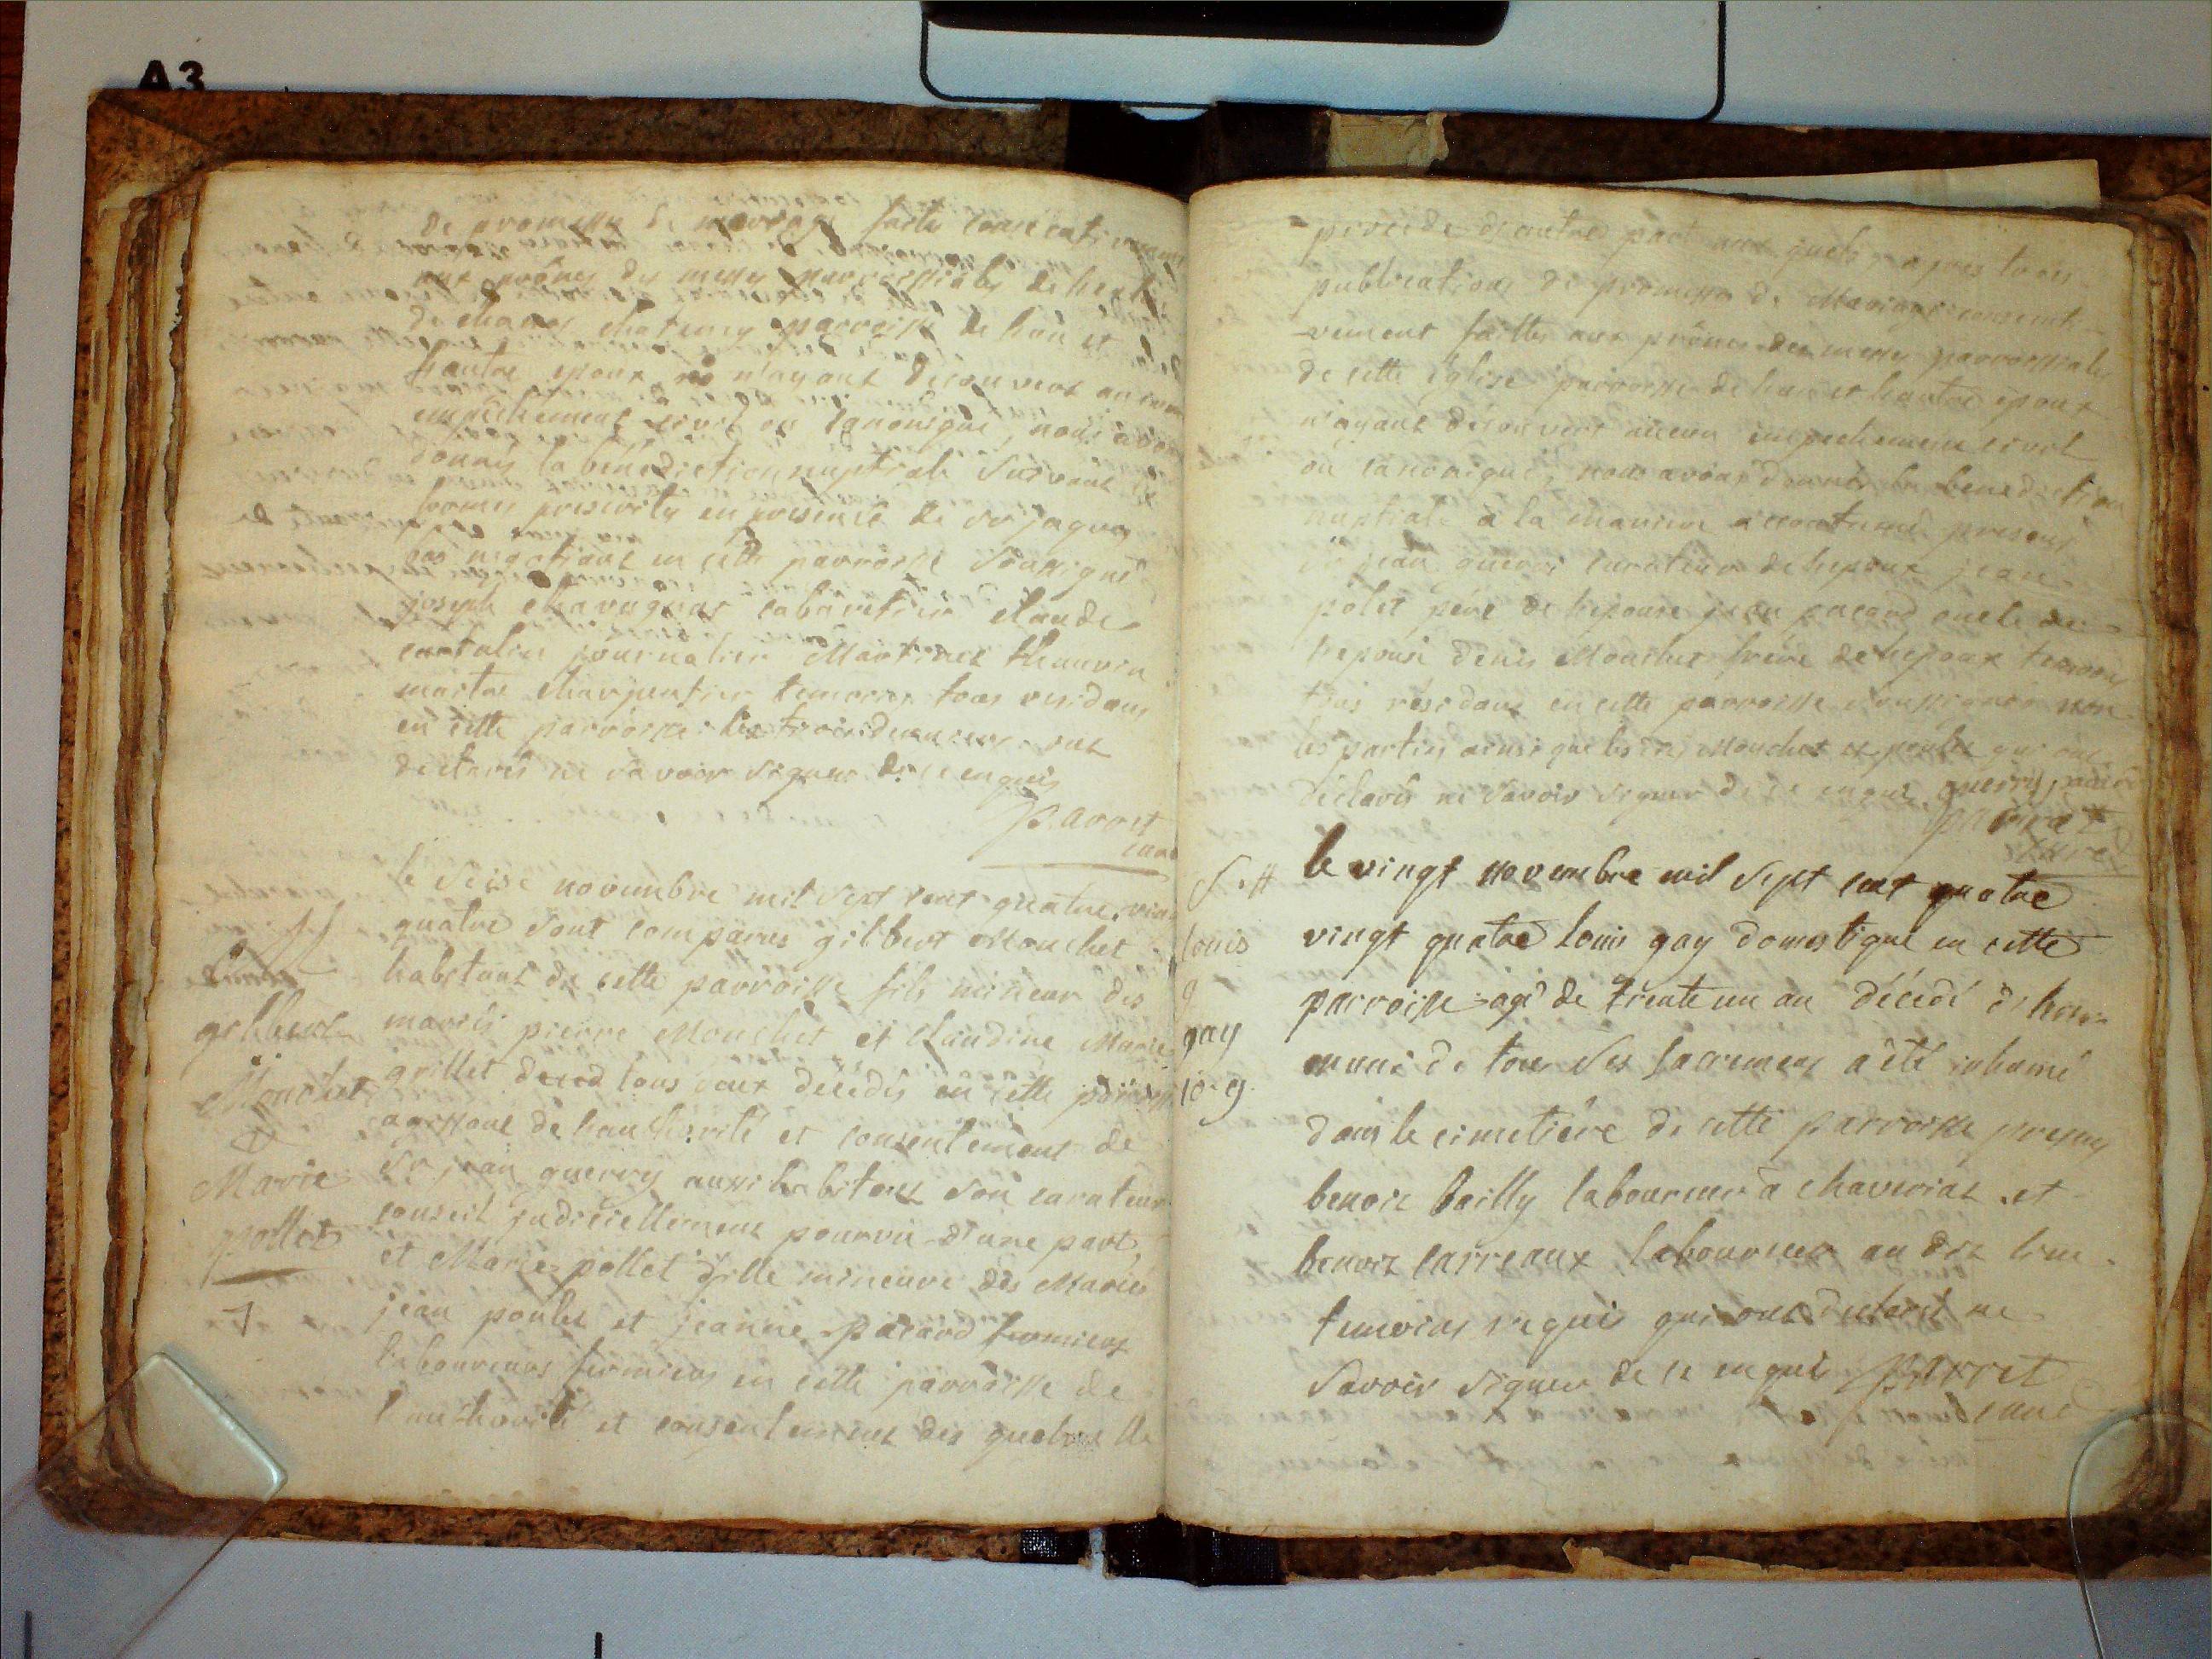 A3
de promesse de mariage faite consecutivement
aux prônes des messes parroissiales
de paroisse de l'un et
l'autre epoux n'ayant decouvert aucun
empêchement civil ou canonique, nous avons
donnés la bénédiction nuptiale suivant les
formes prescrites en presence de sr jaques
negotiant en cette parroisse soussigné
joseph cabaretier claude
journalier thauvin
maitre charpentier temoins tous residans
en cette parroisse les trois derniers ont
declarés ne savoir signer de ce enquis
parret
curé
le seise novembre mil sept cent quatre vingt
quatre sont comparus gilbert Mouchet
habitant de cette parroisse fils mineur des
mariés pierre Mouchet et Claudine Marie
grillet tous deux décédés en cette parroisse
agissant de l'authorité et consentement de
sr jean guerry aussi habitant son curateur
conseil judiciellement pourvu d'une part,
et Marie pollet fille mineure des Mariés
jean poulet et jeanne pacaud fermiers
laboureurs fermiers en cette parroisse de
l'authorité et consentement des quels elle
M
gilbert
Mouchet
&
Marie
pollet
7
procede d'autre part aux quels apres trois
publications de promesse de Mariage consecuti-
vement faittes aux prônes des messes parroissiales
de cette église parroisse de l'un et l'autre epoux
n'ayant decouvert aucun empechement civil
ou canonique, nous avons donnés la benediction
nuptiale à la maniere accoutumé presens
sr jean guerri curateur de l'epoux jean
polet pére de l'epouse jean pacaud oncle de
l'epouse denis Mouchet frére de l'epoux temoins
tous residans en cette parroisse soussignés non
les parties ainsi que les dts Mouchet et poulet qui ont
déclarés ne savoir signer de ce enquis guerry pacaud
parret
curé
S. #
louis
gay
10. g.
le vingt novembre mil sept cent quatre
vingt quatre louis gay domestique en cette
parroisse agé de trente un an décédé d'hier
muni de tous ses sacremens a été inhumé
dans le cimetiére de cette parroisse presens
benoit bailly laboureur à chaveriat et
benoit carreaux laboureur au dit lieu
temoins requis qui ont declaré ne
savoir signer de ce enquis parret
curé